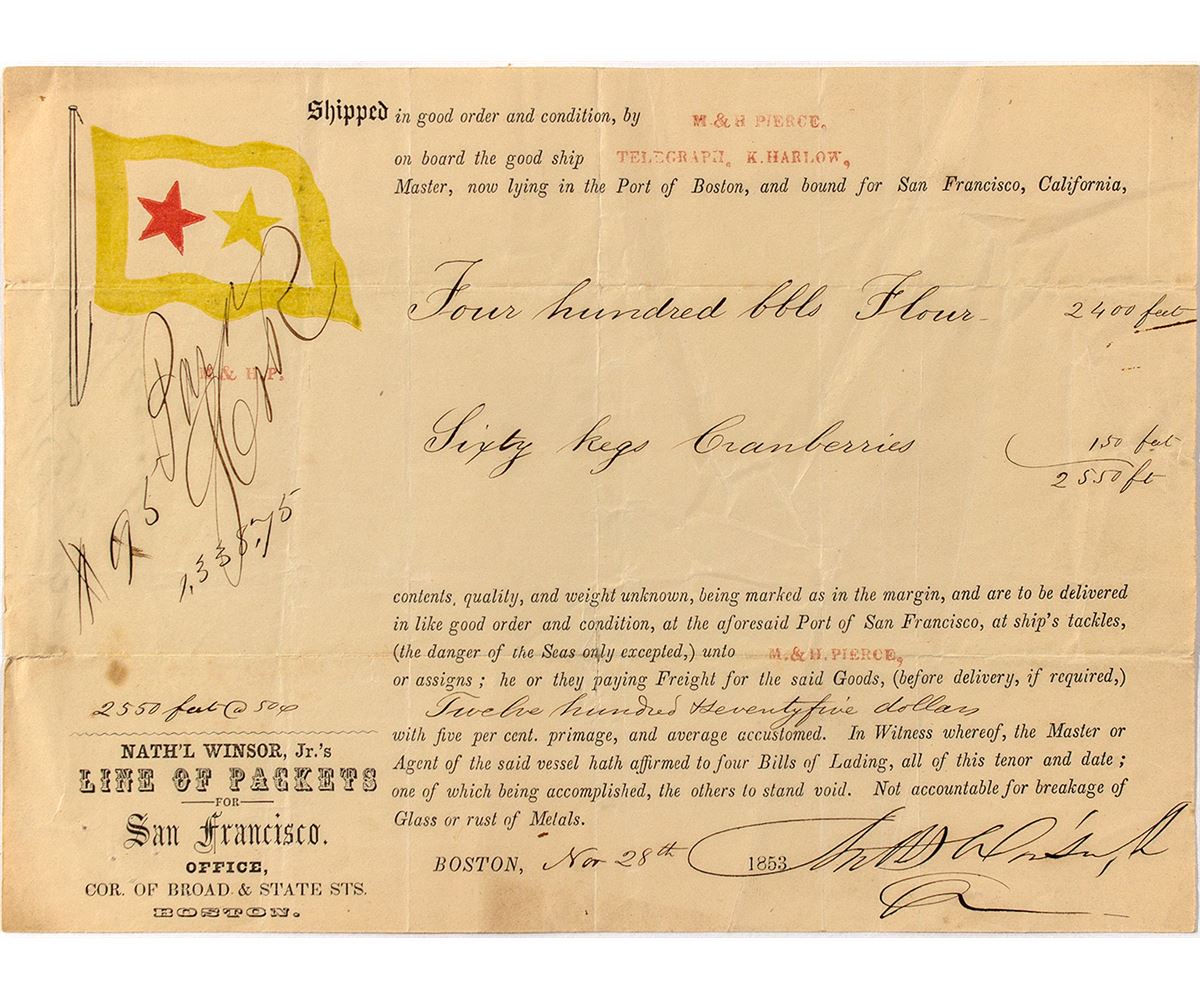 Shipped in good order and condition, by M. & H PIERCE,
on board the good ship TELEGRAPH, K. HARLOW,
Master, now lying in the Port of Boston, and bound for San Francisco, California,
Four hundred bbls Flour 2400 feet
M & H. P.
Sixty kegs Cranberries 150 feet
2550 ft
1,338.75
contents, quality, and weight unknown, being marked as in the margin, and are to be delivered
in like good order and condition, at the aforesaid Port of San Francisco, at ship's tackles,
(the danger of the Seas only excepted,) unto M. & H. PIERCE,
or assigns; he or they paying Freight for the said Goods, (before delivery, if required,)
Twelve hundred & seventyfive dollars
with five per cent. primage, and average accustomed. In Witness whereof, the Master or
Agent of the said vessel hath affirmed to four Bills of Lading, all of this tenor and date;
one of which being accomplished, the others to stand void. Not accountable for breakage of
Glass or rust of Metals.
BOSTON, Nov 28th 1853
2550 feet @ 50c
NATH'L WINSOR, Jr.'s
LINE OF PACKETS
FOR
San Francisco.
OFFICE,
COR. OF BROAD & STATE STS.
BOSTON.